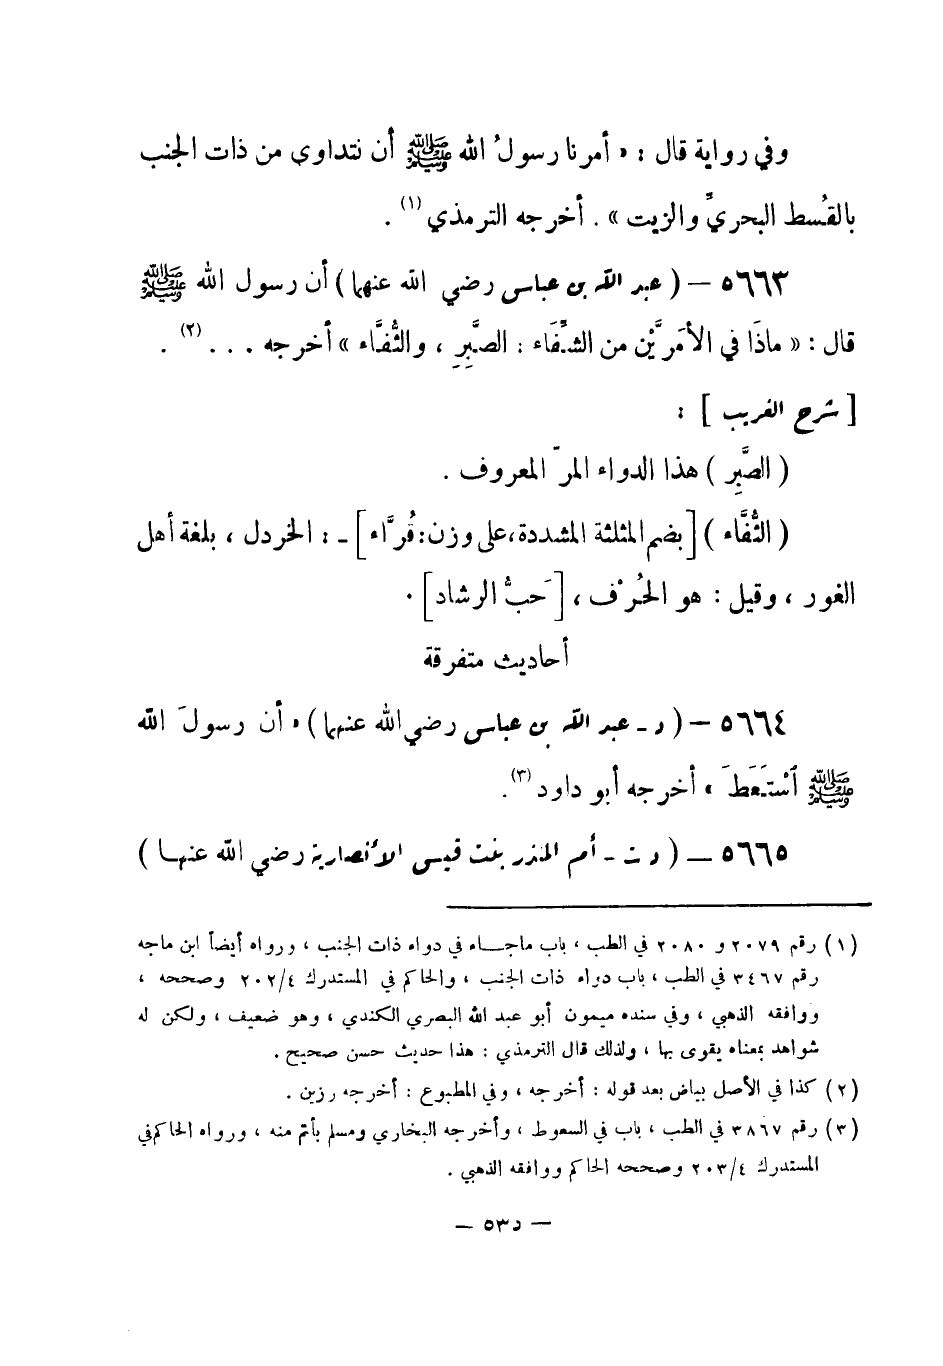 وفي رواية قال : « أمرنا رسولُ الله ﷺ أن نتداوى من ذات الجنب
بالقُسط البحريِّ والزيت » . أخرجه الترمذي (١) .
٥٦٦٣ — ( عبد الله بن عباس رضي الله عنهما ) أن رسول الله ﷺ
قال : « ماذَا في الأمَرَّيْن من الشِّفَاء : الصَّبِرِ ، والثُّفَّاء » أخرجه . . . (٢) .
[ شرح الغريب ] :
( الصَّبِر ) هذا الدواء المرّ المعروف .
( الثُّفَّاء ) [ بضم المثلثة المشددة ، على وزن : قُرَّاء ] ـ : الخردل ، بلغة أهل
الغور ، وقيل : هو الحُرْف ، [ حَبُّ الرشاد ] .
أحاديث متفرقة
٥٦٦٤ — ( د ـ عبد الله بن عباس رضي الله عنهما ) « أن رسولَ الله
ﷺ ٱسْتَعَطَ » أخرجه أبو داود (٣) .
٥٦٦٥ — ( د ت ـ أم المنذر بنت قيس الأنصارية رضي الله عنها )
(١) رقم ٢٠٧٩ و ٢٠٨٠ في الطب ، باب ماجاء في دواء ذات الجنب ، ورواه أيضاً ابن ماجه
رقم ٣٤٦٧ في الطب ، باب دواء ذات الجنب ، والحاكم في المستدرك ٢٠٢/٤ وصححه ،
ووافقه الذهبي ، وفي سنده ميمون أبو عبد الله البصري الكندي ، وهو ضعيف ، ولكن له
شواهد بمعناه يقوى بها ، ولذلك قال الترمذي : هذا حديث حسن صحيح .
(٢) كذا في الأصل بياض بعد قوله : أخرجه ، وفي المطبوع : أخرجه رزين .
(٣) رقم ٣٨٦٧ في الطب ، باب في السعوط ، وأخرجه البخاري ومسلم بأتم منه ، ورواه الحاكم في
المستدرك ٢٠٣/٤ وصححه الحاكم ووافقه الذهبي .